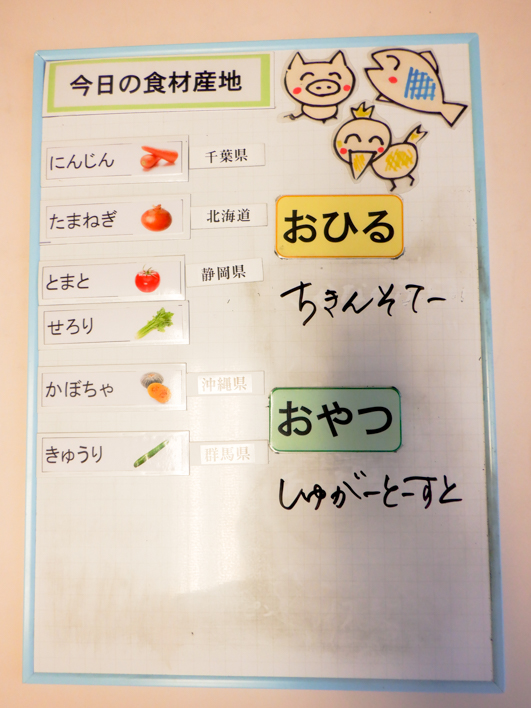 今日の食材産地
にんじん 千葉県
たまねぎ 北海道
とまと 静岡県
せろり
かぼちゃ 沖縄県
きゅうり 群馬県
おひる
ちきんそてー
おやつ
しゅがーとーすと